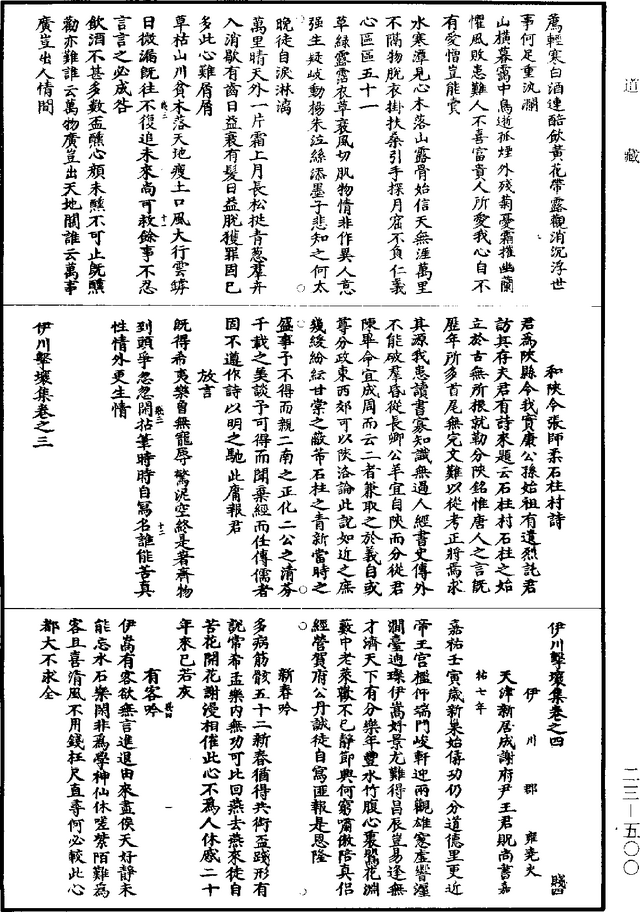 道藏
二三—五〇〇
薦輕寒白酒連醅飲黃花帶露觀消沉浮世
事何足重汍瀾
山橫暮靄中鳥逝孤煙外殘菊憂霜摧幽蘭
懼風敗患難人不喜富貴人所愛我心自不
有愛憎豈能賣
水寒潭見心木落山露骨始信天無涯萬里
不隔物脫衣掛扶桑引手探月窟不負仁義
心區區五十一
草綠露霑衣草衰風切肌物情非作異人意
强生疑岐動楊朱泣絲添墨子悲知之何太
晚徒自淚淋漓
萬里晴天外一片霜上月長松挺青葱羣卉
入消歇有齒日益衰有髮日益脫獲罪固已
多此心難屑屑
草枯山川貧木落天地瘦土口風大行雲罅
日微漏既往不復追未來尚可救餘事不忍
言言之必成咎
飲酒不甚多數盃醺心顏未醺不可止既醺
勸亦難誰云萬物廣豈出天地關誰云萬事
廣豈出人情間
和陝令張師柔石柱村詩
君爲陝縣令我實康公孫始祖有遺烈託君
訪其存夫君有詩來題云石柱村石柱之始
立於古無所根就勒分陝銘惟唐人之言既
歷年所多首尾無完文難以從考正將焉求
其源我患讀書寡知識無過人經書史傳外
不能破羣昏從長卿公羊宜自陝而分從君
陳畢命宜成周而云二者兼取之於義自或
尊分政東西郊可以陝洛論此說如近之庶
幾緩紛紜甘棠之蔽芾石柱之青新當時之
盛事予不得而親二南之正化二公之清芬
千載之美談予可得而聞棄經而任傳儒者
固不遵作詩以明之馳此庸報君
放言
既得希夷樂曾無寵辱驚泥空終是著齊物
到頭爭忽忽閑拈筆時時自寫名誰能苦真
性情外更生情
伊川擊壤集卷之三
伊川擊壤集卷之四
賤四
伊川郡雍堯夫
天津新居成謝府尹王君貺尚書嘉
祐七年
嘉祐壬寅歲新巢始僝功仍分道德里更近
帝王宮檻仰端門峻軒迎兩觀雄窻虛響瀍
澗臺迥璨伊嵩好景尤難得昌辰豈易逢無
才濟天下有分樂年豐水竹腹心裏鶯花淵
藪中老萊歡不已靜節興何窮嘯傲陪真侶
經營賀府公丹誠徒自寫匪報是恩隆
新春吟
多病筋骸五十二新春猶得共銜盃踐形有
說常希孟樂內無功可比回燕去燕來徒自
苦花開花謝漫相催此心不爲人休戚二十
年來已若灰
有客吟
伊嵩有客欲無言進退由來盡俟天好靜未
能忘水石樂閑非爲學神仙休嗟紫陌難爲
客且喜清風不用錢枉尺直尋何必較此心
都大不求全